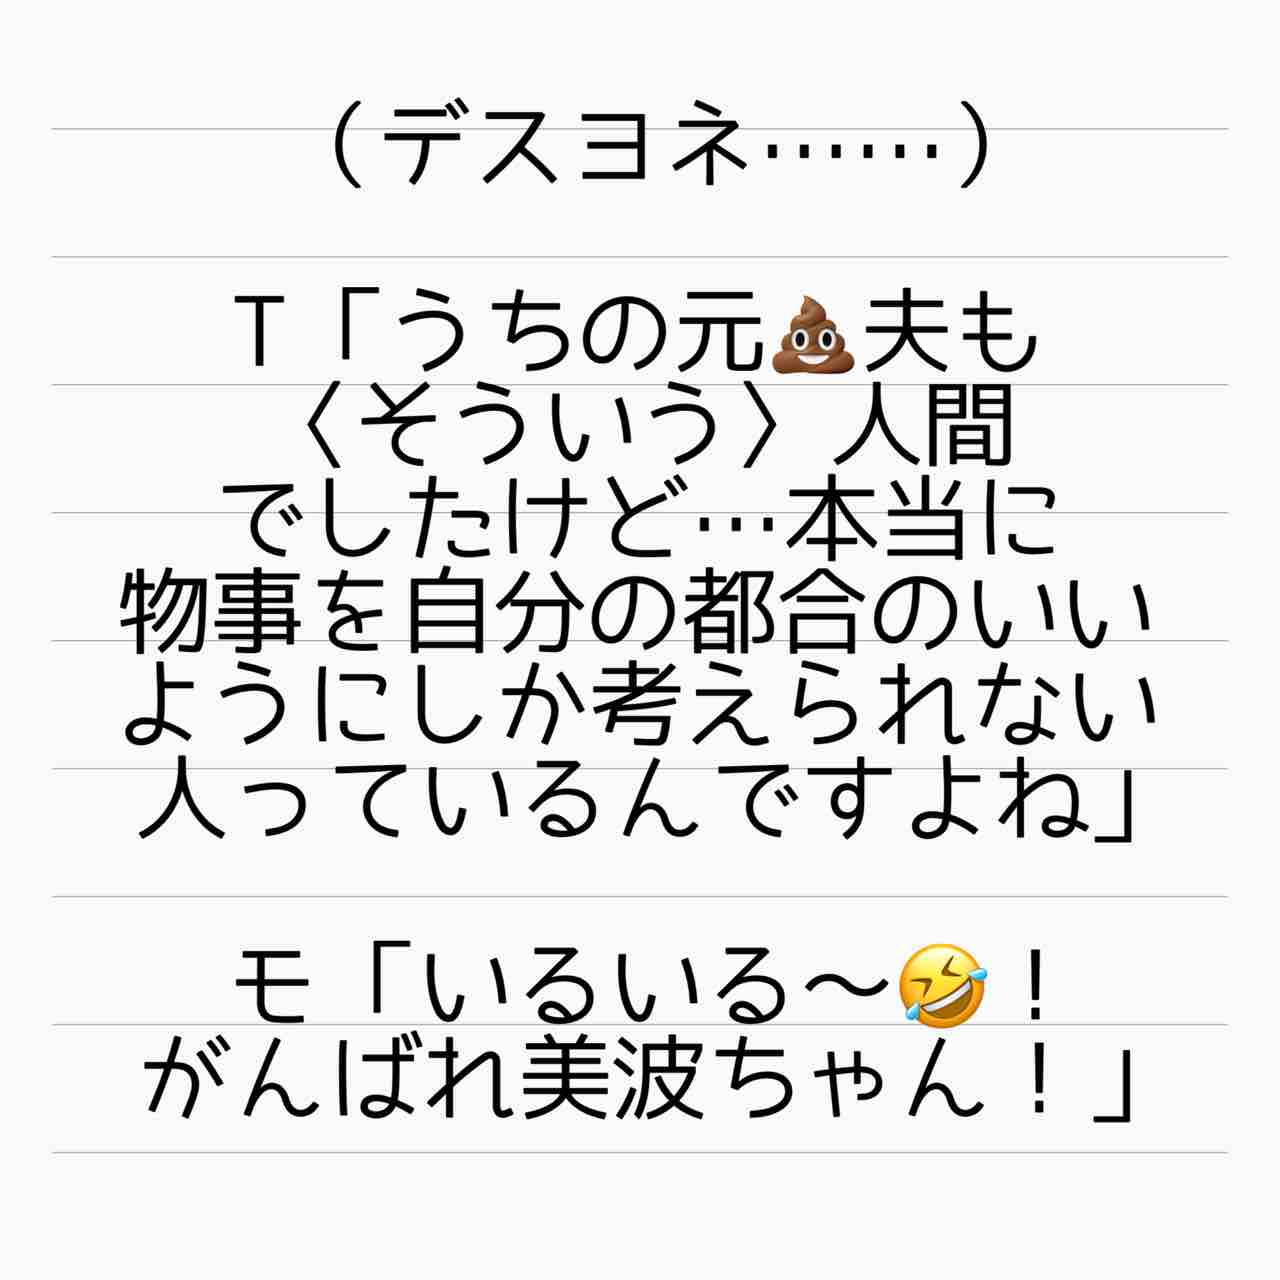 （デスヨネ……）
T「うちの元💩夫も
〈そういう〉人間
でしたけど…本当に
物事を自分の都合のいい
ようにしか考えられない
人っているんですよね」
モ「いるいる〜🤣！
がんばれ美波ちゃん！」